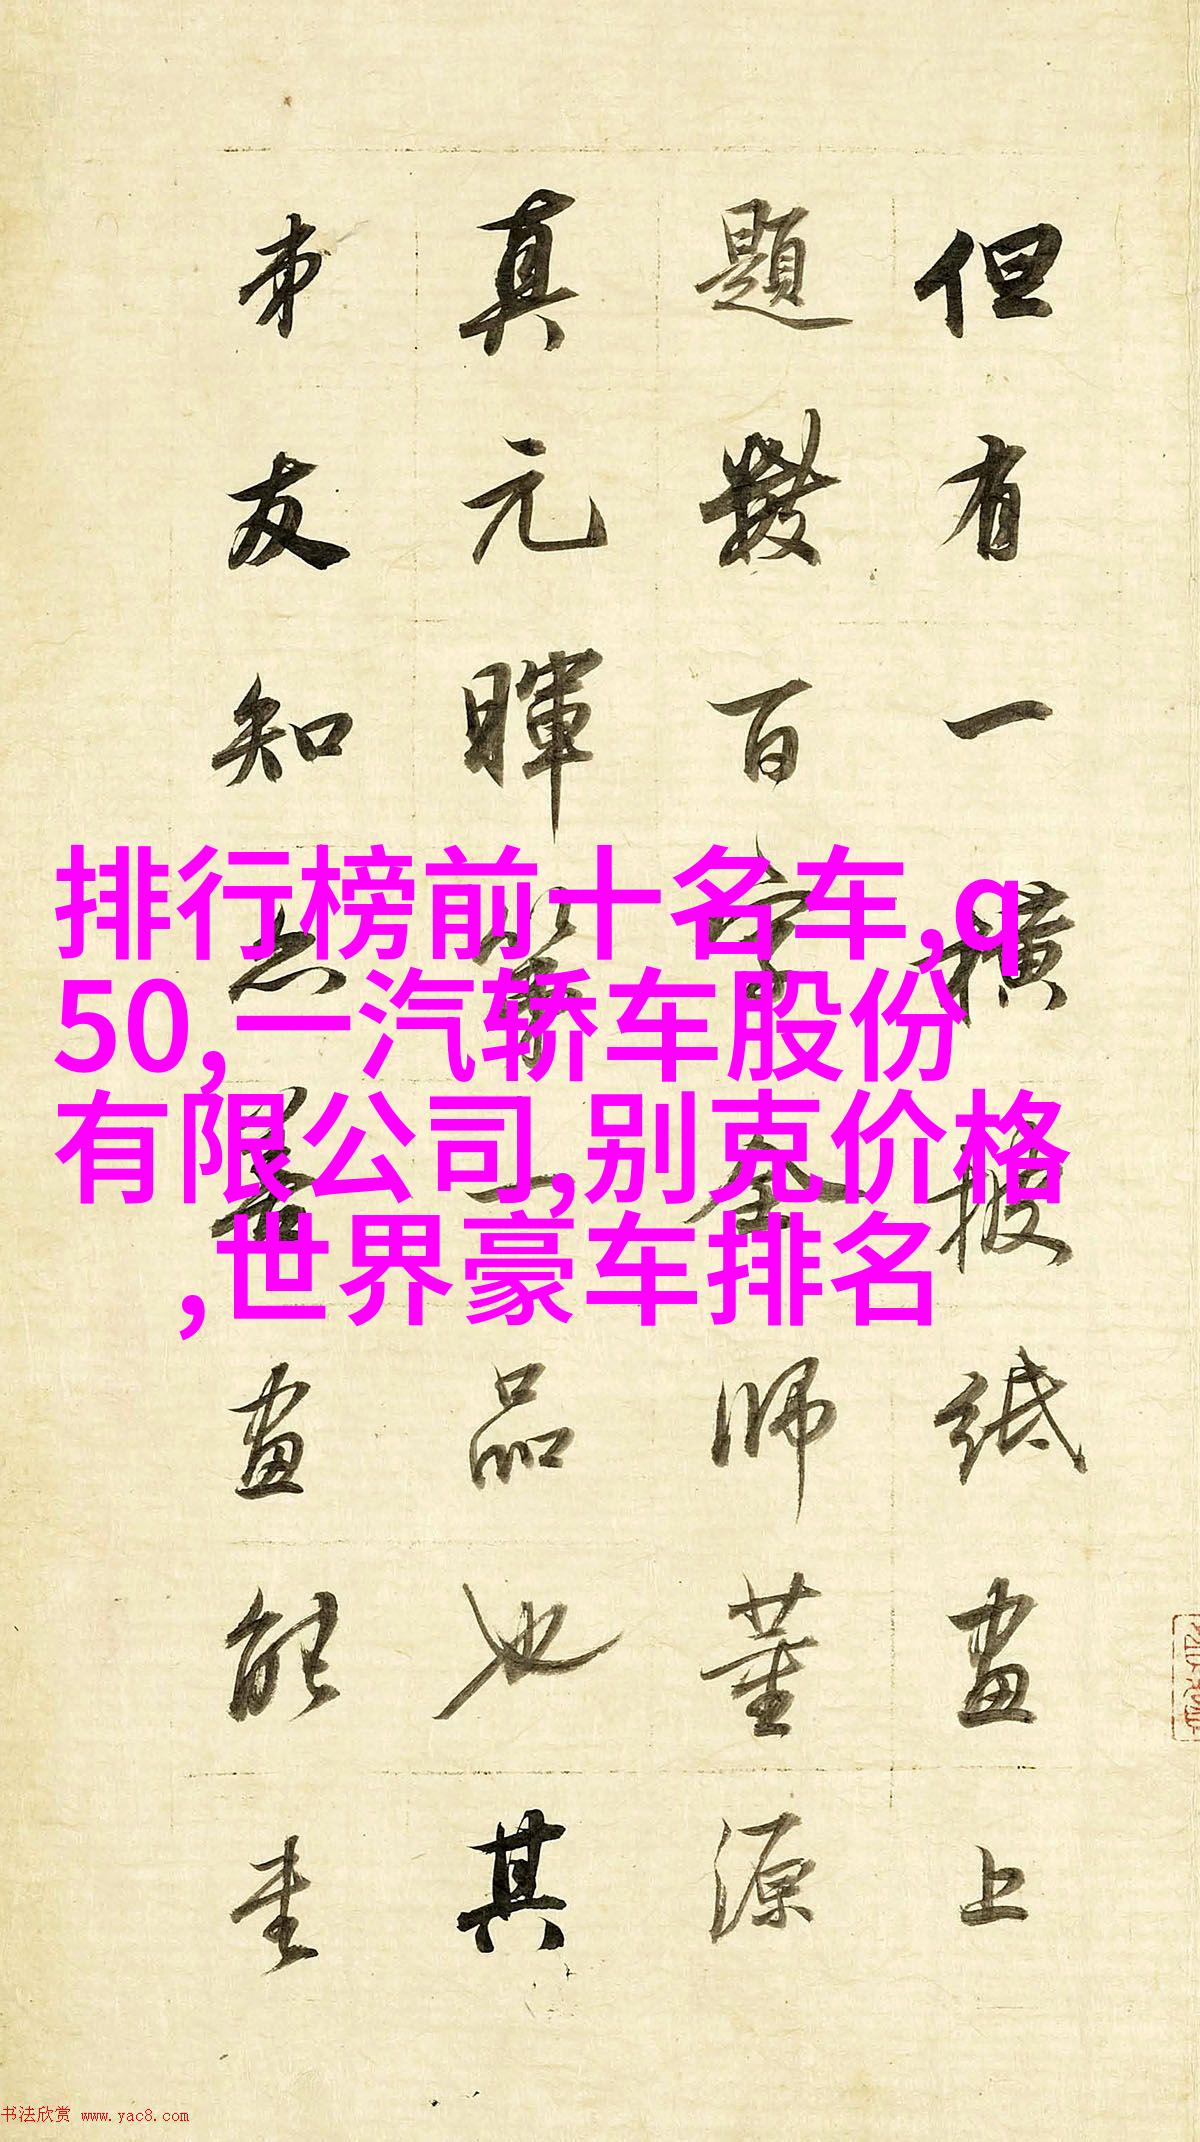 但有一横披纸画上
題數百字余師董源
真元暉筆一品也其
弟友知
画能
排行榜前十名车,q
50,一汽轿车股份
有限公司,别克价格
,世界豪车排名
书法欣赏 www.yac8.com